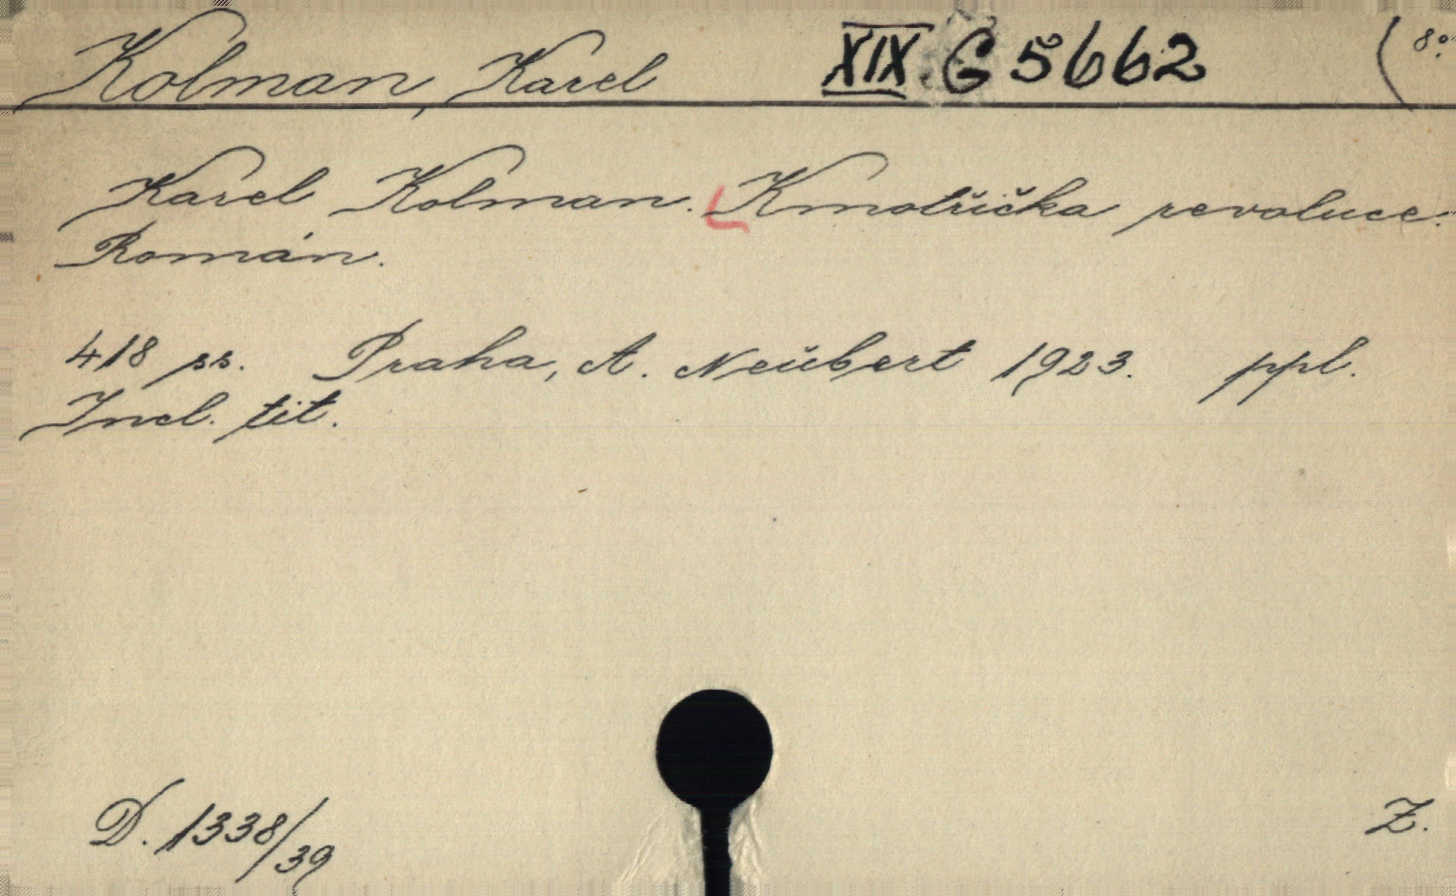 Kolman, Karel XIX G 5662 (8°.
Karel Kolman. Kmotřička revoluce.
Román.
418 ss. Praha, A. Neübert 1923. ppl.
Incl. tit.
D. 1338/39 Z.